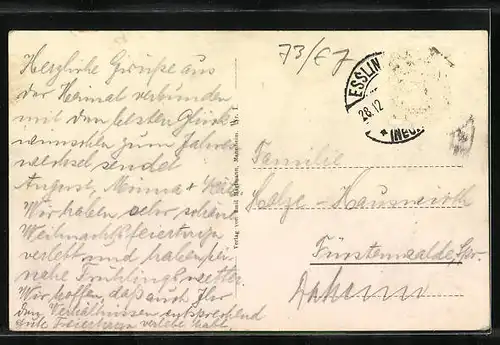 Herzliche Grüße aus
der Heimat verbunden
mit den besten Glück
wünschen zum Jahres
wechsel sendet
August, Minna +
Wir haben sehr schöne
Weihnachtsfeiertage
verlebt und haben bei
nahe Frühlingswetter.
Wir hoffen, daß auch Ihr
den Verhältnissen entsprechend
gute Feiertage verlebt habt.
Verlag von Emil Hartmann, Mannheim.
73/E7
ESSLIN
28.12
* (NEC
Familie
Holze - Hauswirth
Fürstenwalde Spr.